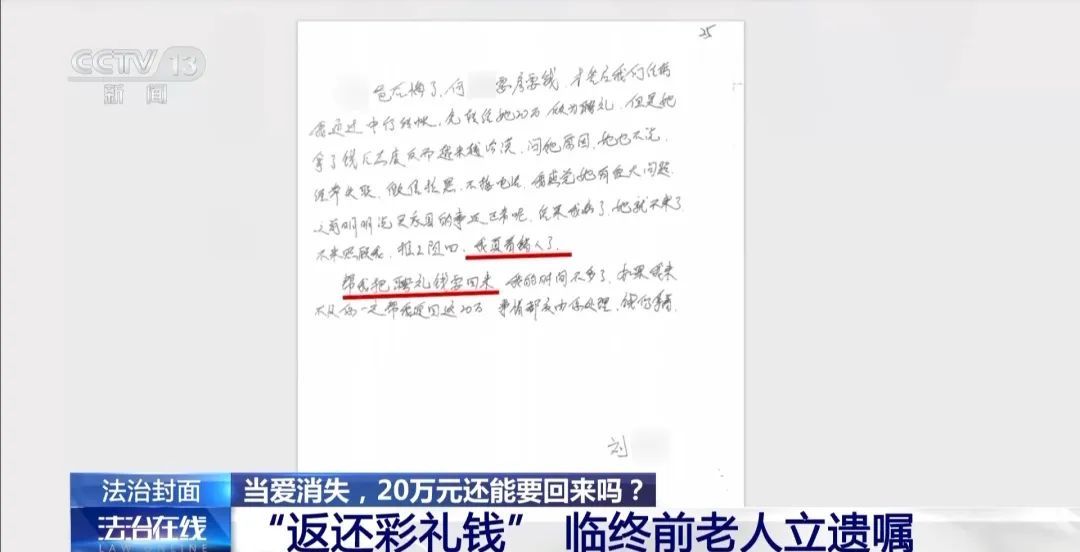 CCTV 13
新闻
25
爸后悔了,何 要彦要钱,才令后我们住稿
我通过中行转帐,先转给她20万做为聘礼,但是她
拿了钱后态度反而越来越冷漠,问她原因,她也不说,
经常失联,微信拉黑,不接电话,我感觉她有蛮大问题,
之前明明说买房的事还正常呢,后来我病了,她就不来了
不来照顾我,推三阻四,我真看错人了。
帮我把聘礼钱要回来 我的时间不多了,如果我来
不及你一定帮我要回这20万 事情都交由你处理,
刘
法治封面
当爱消失,20万元还能要回来吗?
法治在线
LAW ONLINE
“返还彩礼钱” 临终前老人立遗嘱